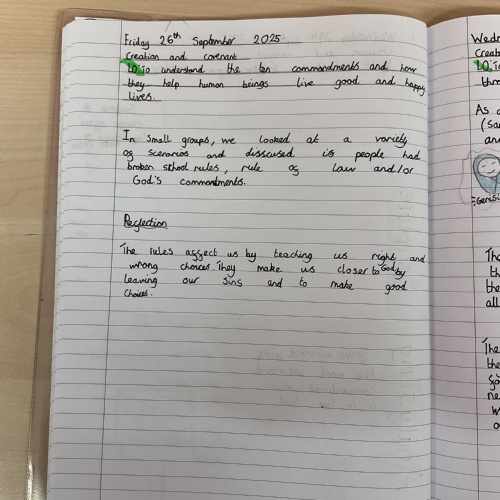 Friday 26th September 2025
Creation and covenant
LO: To understand the ten commandments and how
they help human beings live good and happy
lives.
In small groups, we looked at a variety
of scenarios and disscused if people had
broken school rules, rule of law and/or
God's commandments.
Reflection
The rules affect us by teaching us right and
wrong choices. They make us closer to God by
leaving our sins and to make good
choices.
Wedn
Creati
LO:
thro
As a
(sa
an
Tha
th
the
all
The
the
ne
w